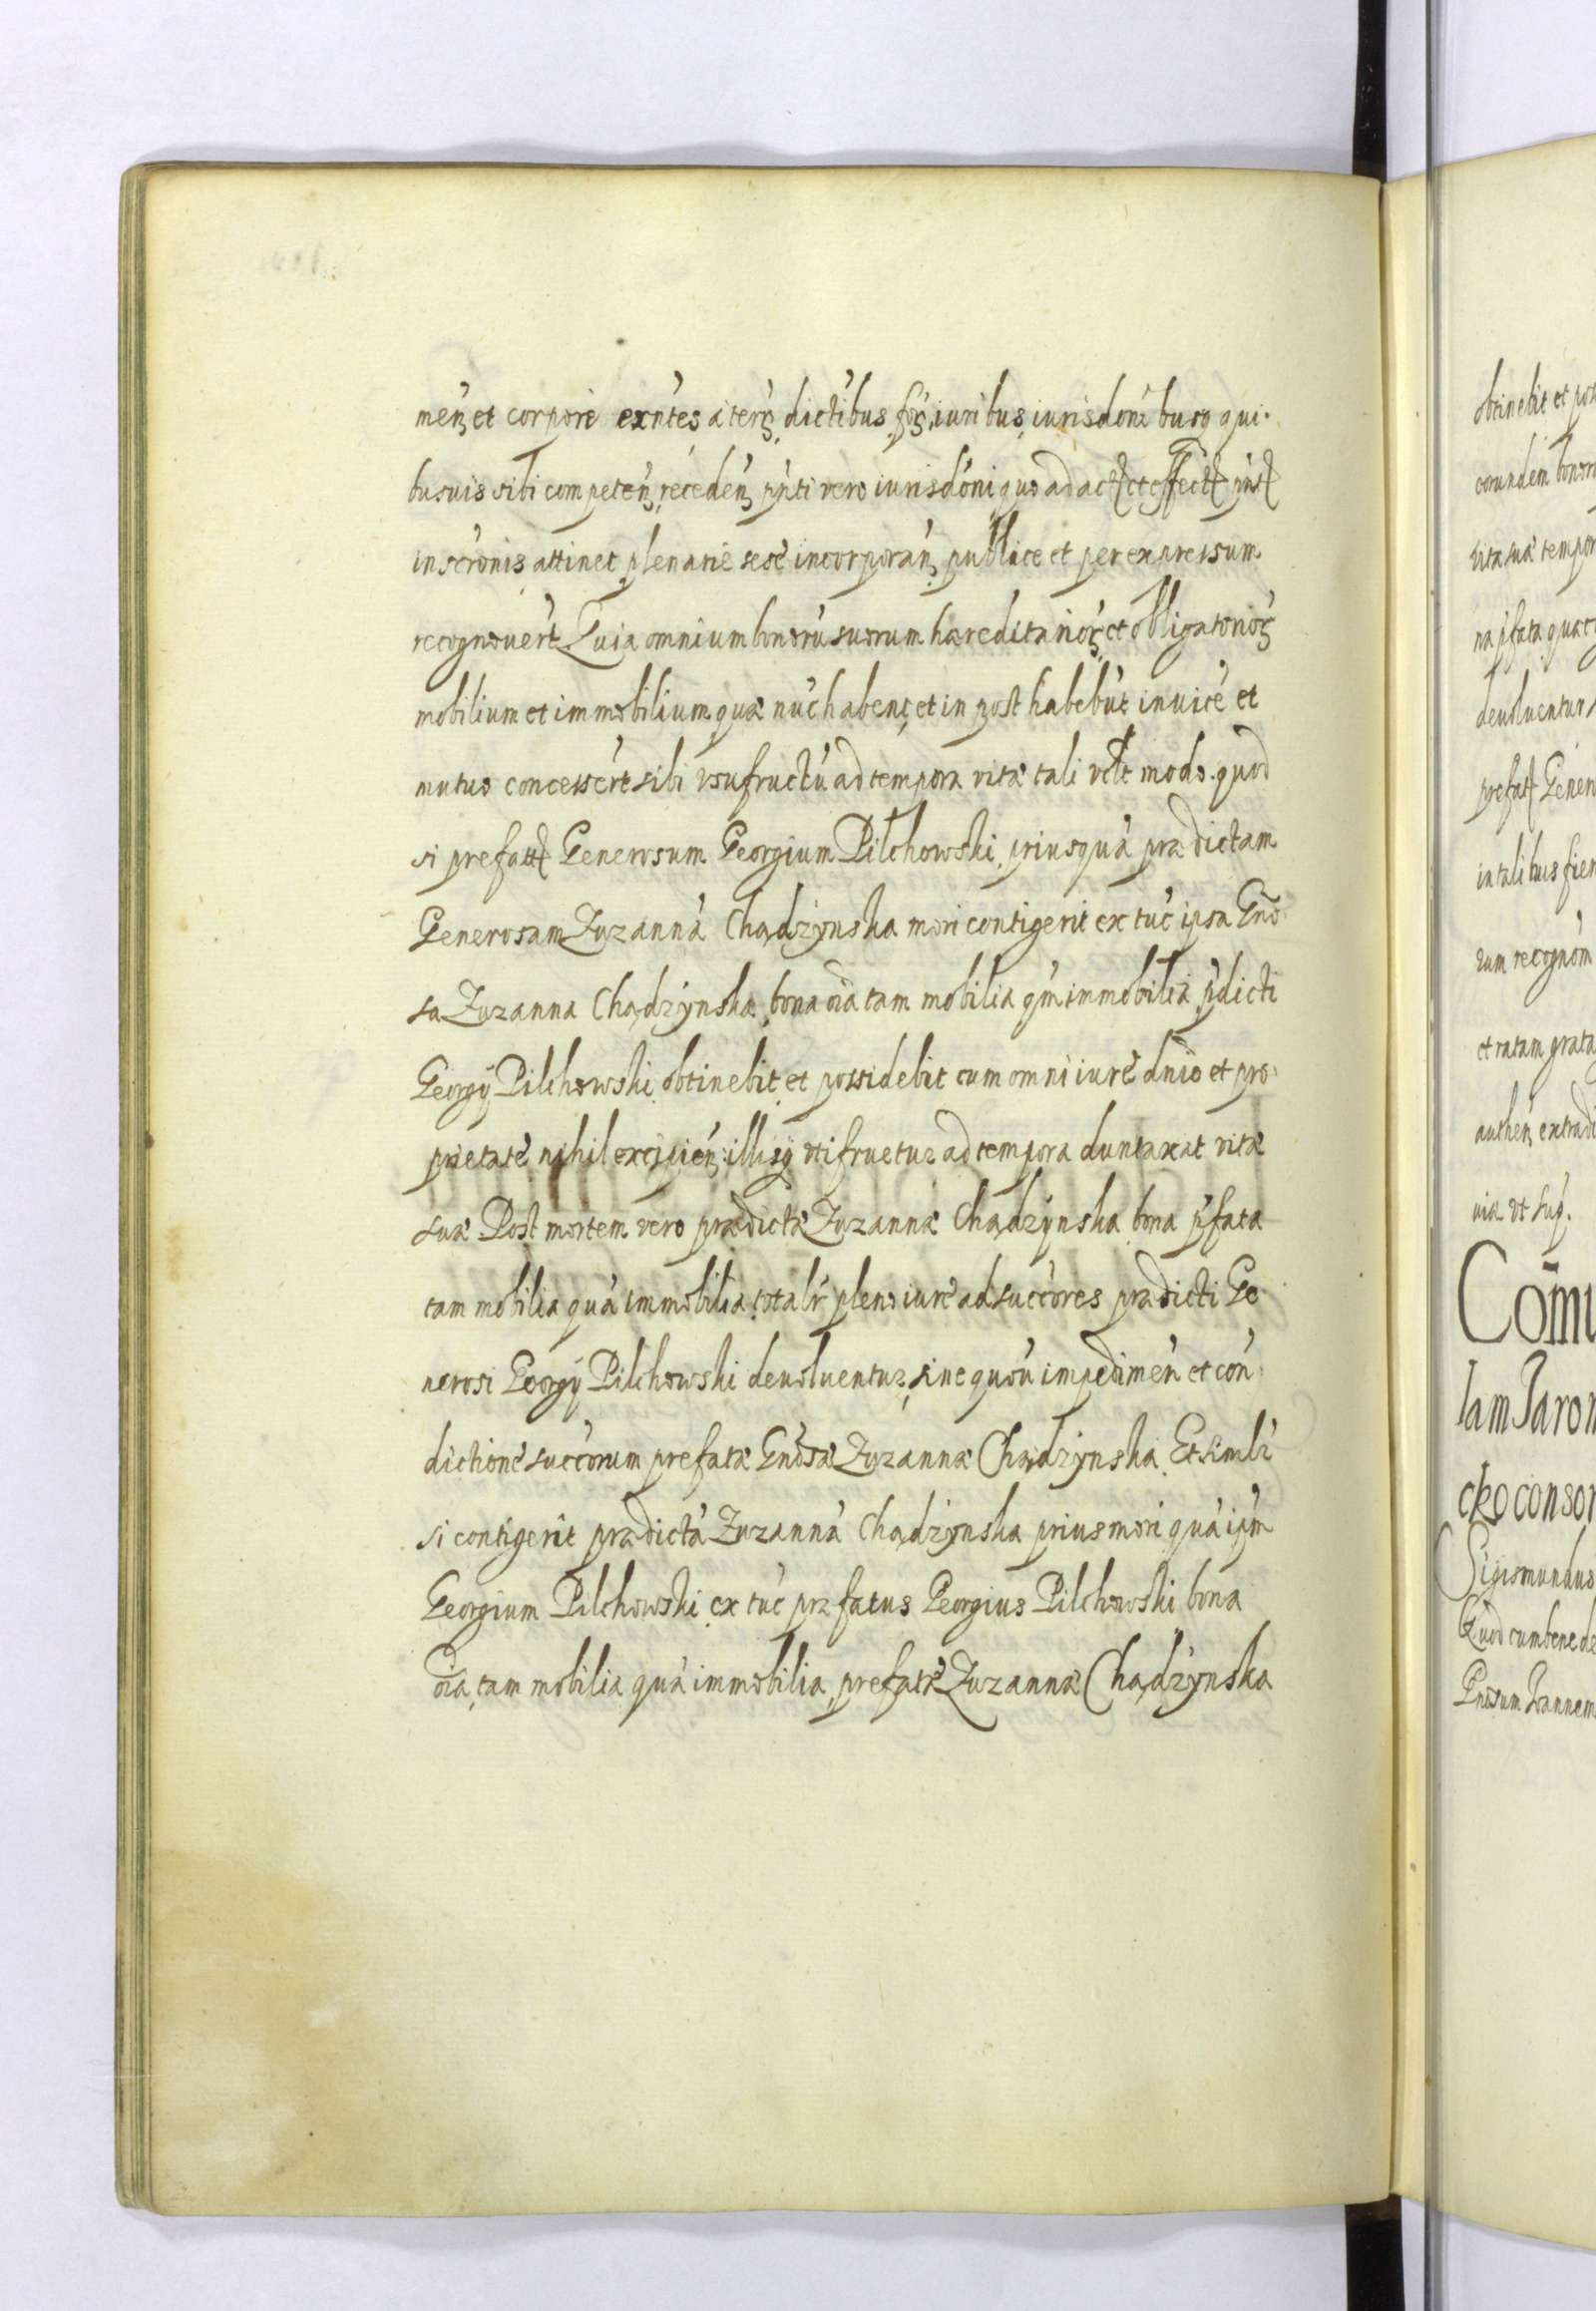 meń et corpore exńtes a terŕ dictibus foŕ, iuribus, iurisdońibusq qui.
busuis sibi competeń, recedeń pńti vero iurisdońi quo ad act et effect pńt
inscronis attinet plenarie sese incorporań publice et per expressum
recognouert Quia omnium bonoru suorum haereditarioŕ et obligatorioŕ
mobilium et immobilium quæ nuc habent et in post habebut inuice et
mutuo concessert sibi vsufructu ad tempora vitæ tali velt modo. quod
si prefatt Generosum Georgium Pilchowski, priusqua prædictam
Generosam Zuzanna Chądzynska mori contigerit ex tuc ipsa Gño
sa Zuzanna Chądzynska, bona oia tam mobilia qm immobilia pdicti
Georgÿ Pilchowski obtinebit et possidebit cum omni iure dnio et pro
prietate nihil excipień illisq vtifruetur ad tempora duntaxat vitæ
suæ Post mortem vero prædictæ Zuzannæ Chądzynska bona pfata
tam mobilia qua immobilia totalr pleno iure ad succores prædicti Ge
nerosi Georgÿ Pilchowski deuoluentur, sine quou impedimeń et coń
dictione succorum prefatæ Gnosæ Zuzannæ Chądzynska. Et simlr
si contigerit prædicta Zuzanna Chądzynska prius mori qua ipm
Georgium Pilchowski, ex tuc præfatus Georgius Pilchowski bona
oia, tam mobilia qua immobilia, prefatæ Zuzannæ Chądzynska
obtinebit et
eorundem bonor
vitæ suæ tempor
na pfata quæ
deuoluentur
prefat Gener
in talibus fier
rum recognom
et ratam grata
autheń extradi
uia vt sup.
Com
lam Jaron
cko conso
Sigismundus
Quod cum bene de
Gnosum Joannem